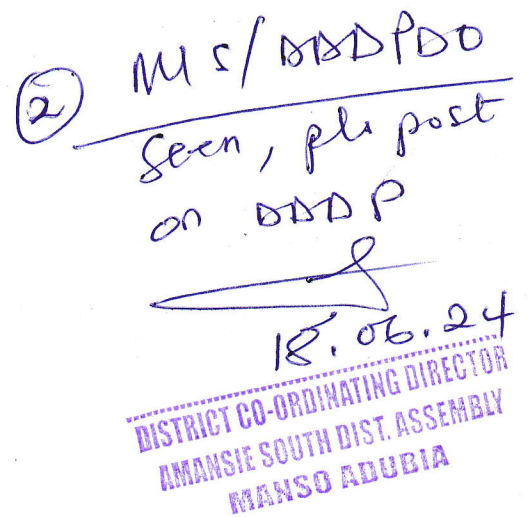 ② MS/DDDPDO
Seen, pls post
on DDDP
18.06.24
DISTRICT CO-ORDINATING DIRECTOR
AMANSIE SOUTH DIST. ASSEMBLY
MANSO ADUBIA